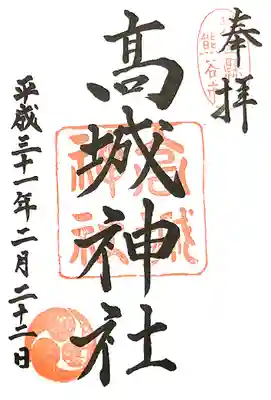 奉拝
熊谷市
高城神社
高城神社
平成三十一年二月二十二日